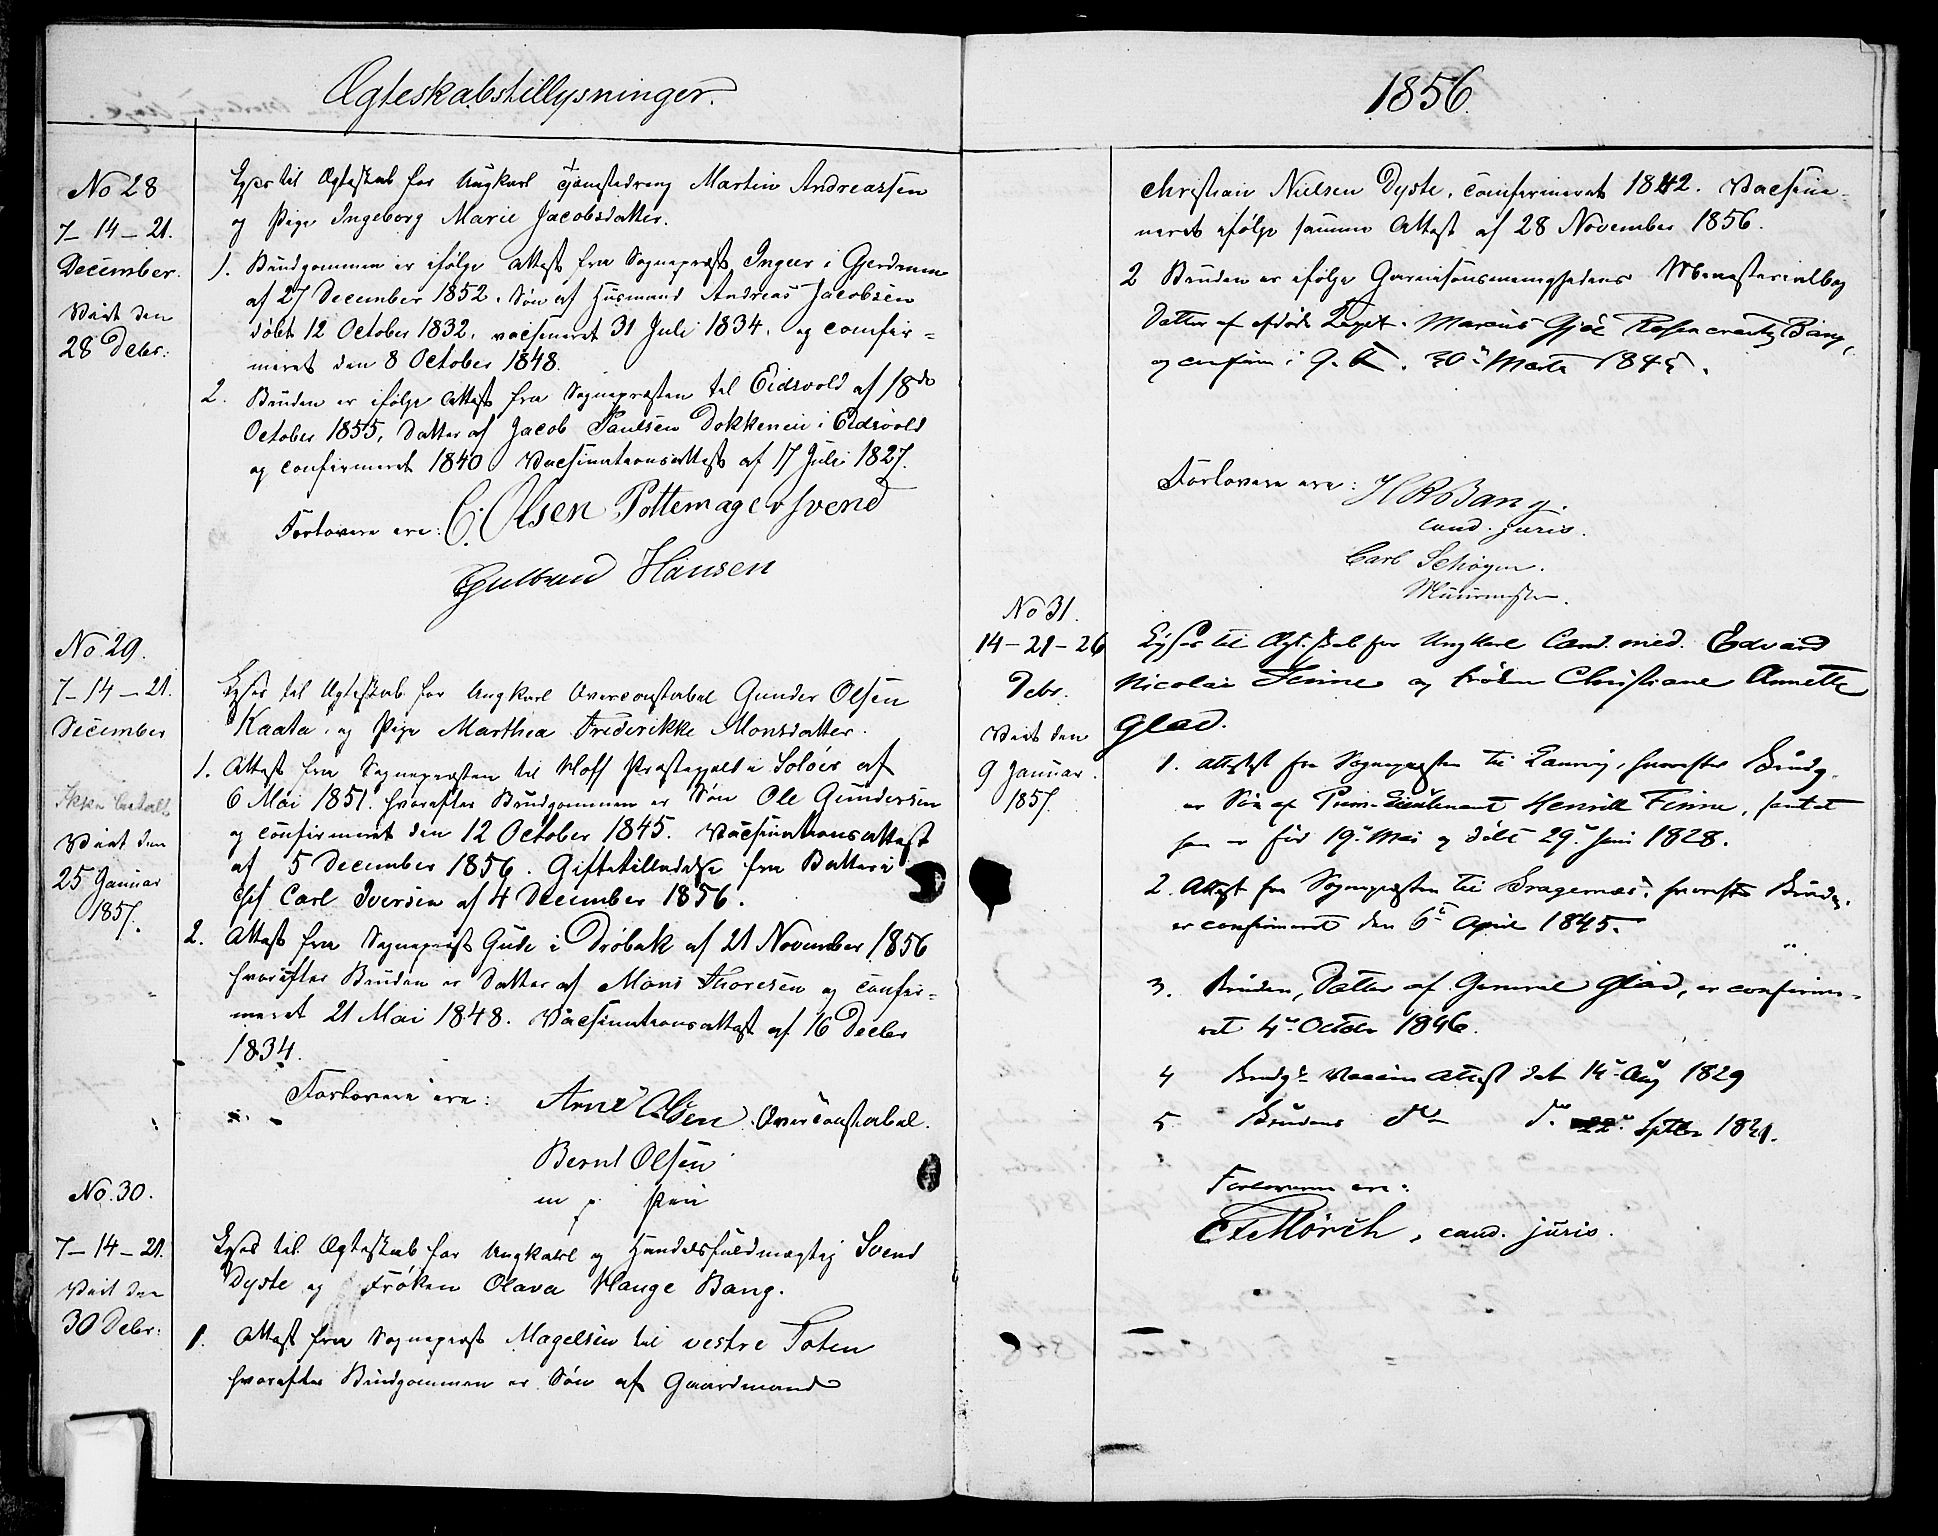 Ægteskabstillysninger.
No 28
7 – 14 – 21.
December.
Viet den
28 Debr:
Lyses til Ægteskab for Ungkarl Tjenestedreng Martin Andreassen
og Pige Ingeborg Marie Jacobsdatter.
1. Brudgommen er ifølge Attest fra Sognepræst Ingier i Gjerdrum
af 27 December 1852. Søn af Husmand Andreas Jacobsen
døbt 12 October 1832, vacsineret 31 Juli 1834. og comfir=
meret den 8 October 1848.
2. Bruden er ifølge Attest fra Sognepræsten til Eidsvold af 18de
October 1855, Datter af Jacob Paulsen Dokkenen i Eidsvold
og confirmeret 1840 Vacsinationsattest af 17 Juli 1827.
Forlovere ere: C. Olsen Pottemagersvend
Gulbrand Hansen
No 29.
7 – 14 – 21.
December
Ikke betalt
Viet den
25 Januar
1857.
Lyses til Ægteskab for Ungkarl Overconstabel Gunder Olsen
Kaata, og Pige Marthea Frederikke Monsdatter.
1. Attest fra Sognepræsten til Hoff Præstegjeld i Soløer af
6 Mai 1851. hvorefter Brudgommen er Søn Ole Gundersen
og confirmeret den 12 October 1845. Vacsinationsattest
af 5 December 1856. Giftetilladelse fra Batteri
chef Carl Iversen af 4 December 1856.
2. Attest fra Sognepræst Gude i Drøbak af 21 November 1856
hvorefter Bruden er Datter af Mons Thoresen og confir=
meret 21 Mai 1848. Vacsinationsattest af 16 Decbr
1834.
Forlovere ere: Arne Olsen Overconstabel.
Bernt Olsen
m p. Pen
No. 30.
7 – 14 – 21.
Viet den
30 Debr:
Lyses til Ægteskab for Ungkarl og Handelsfuldmægtig Svend
Dyste og Frøken Olava Hauge Bang.
1. Attest fra Sognepræst Magelsen til vestre Toten
hvorefter Brudgommen er Søn af Gaardmand
1856.
Christian Nielsen Dyste, comfirmeret 1842. Vacsine-
neret ifølge samme Attest af 28 November 1856.
2 Bruden er ifølge Garnisonsmenighedens Ministerialbog
Datter af afdøde Marcus Gjøe Rosencrantz Bang,
og confirm i G. K. 30 Marts 1845.
Forlovere ere: H R Bang.
cand. juris.
Carl Schøyen.
Muurmester.
No 31.
14 – 21 – 26
Debr.
Viet den
9 Januar.
1857.
Lyses til Ægteskab for Ungkarl Cand. med. Edvard
Nicolai Finne og Frøken Christiane Annette
Glad.
1. Attest fra Sognepræsten til hvorefter Brudg.
er Søn af Premierlieutenant Henrik Finne, samt at
han er født 19. Mai og døbt 29. Juni 1828.
2. Attest fra Sognepræsten til Bragernæs, hvorefter Brudg.
er confirmeret den 6te April 1845.
3. Bruden, Datter af General Glad, er confirme=
ret 4. October 1846.
4 Brudgs Vaccine Attest dat 14 Aug 1829
5 Brudens do do Septbr 1831.
Forloverne ere:
Mørch, cand. juris.